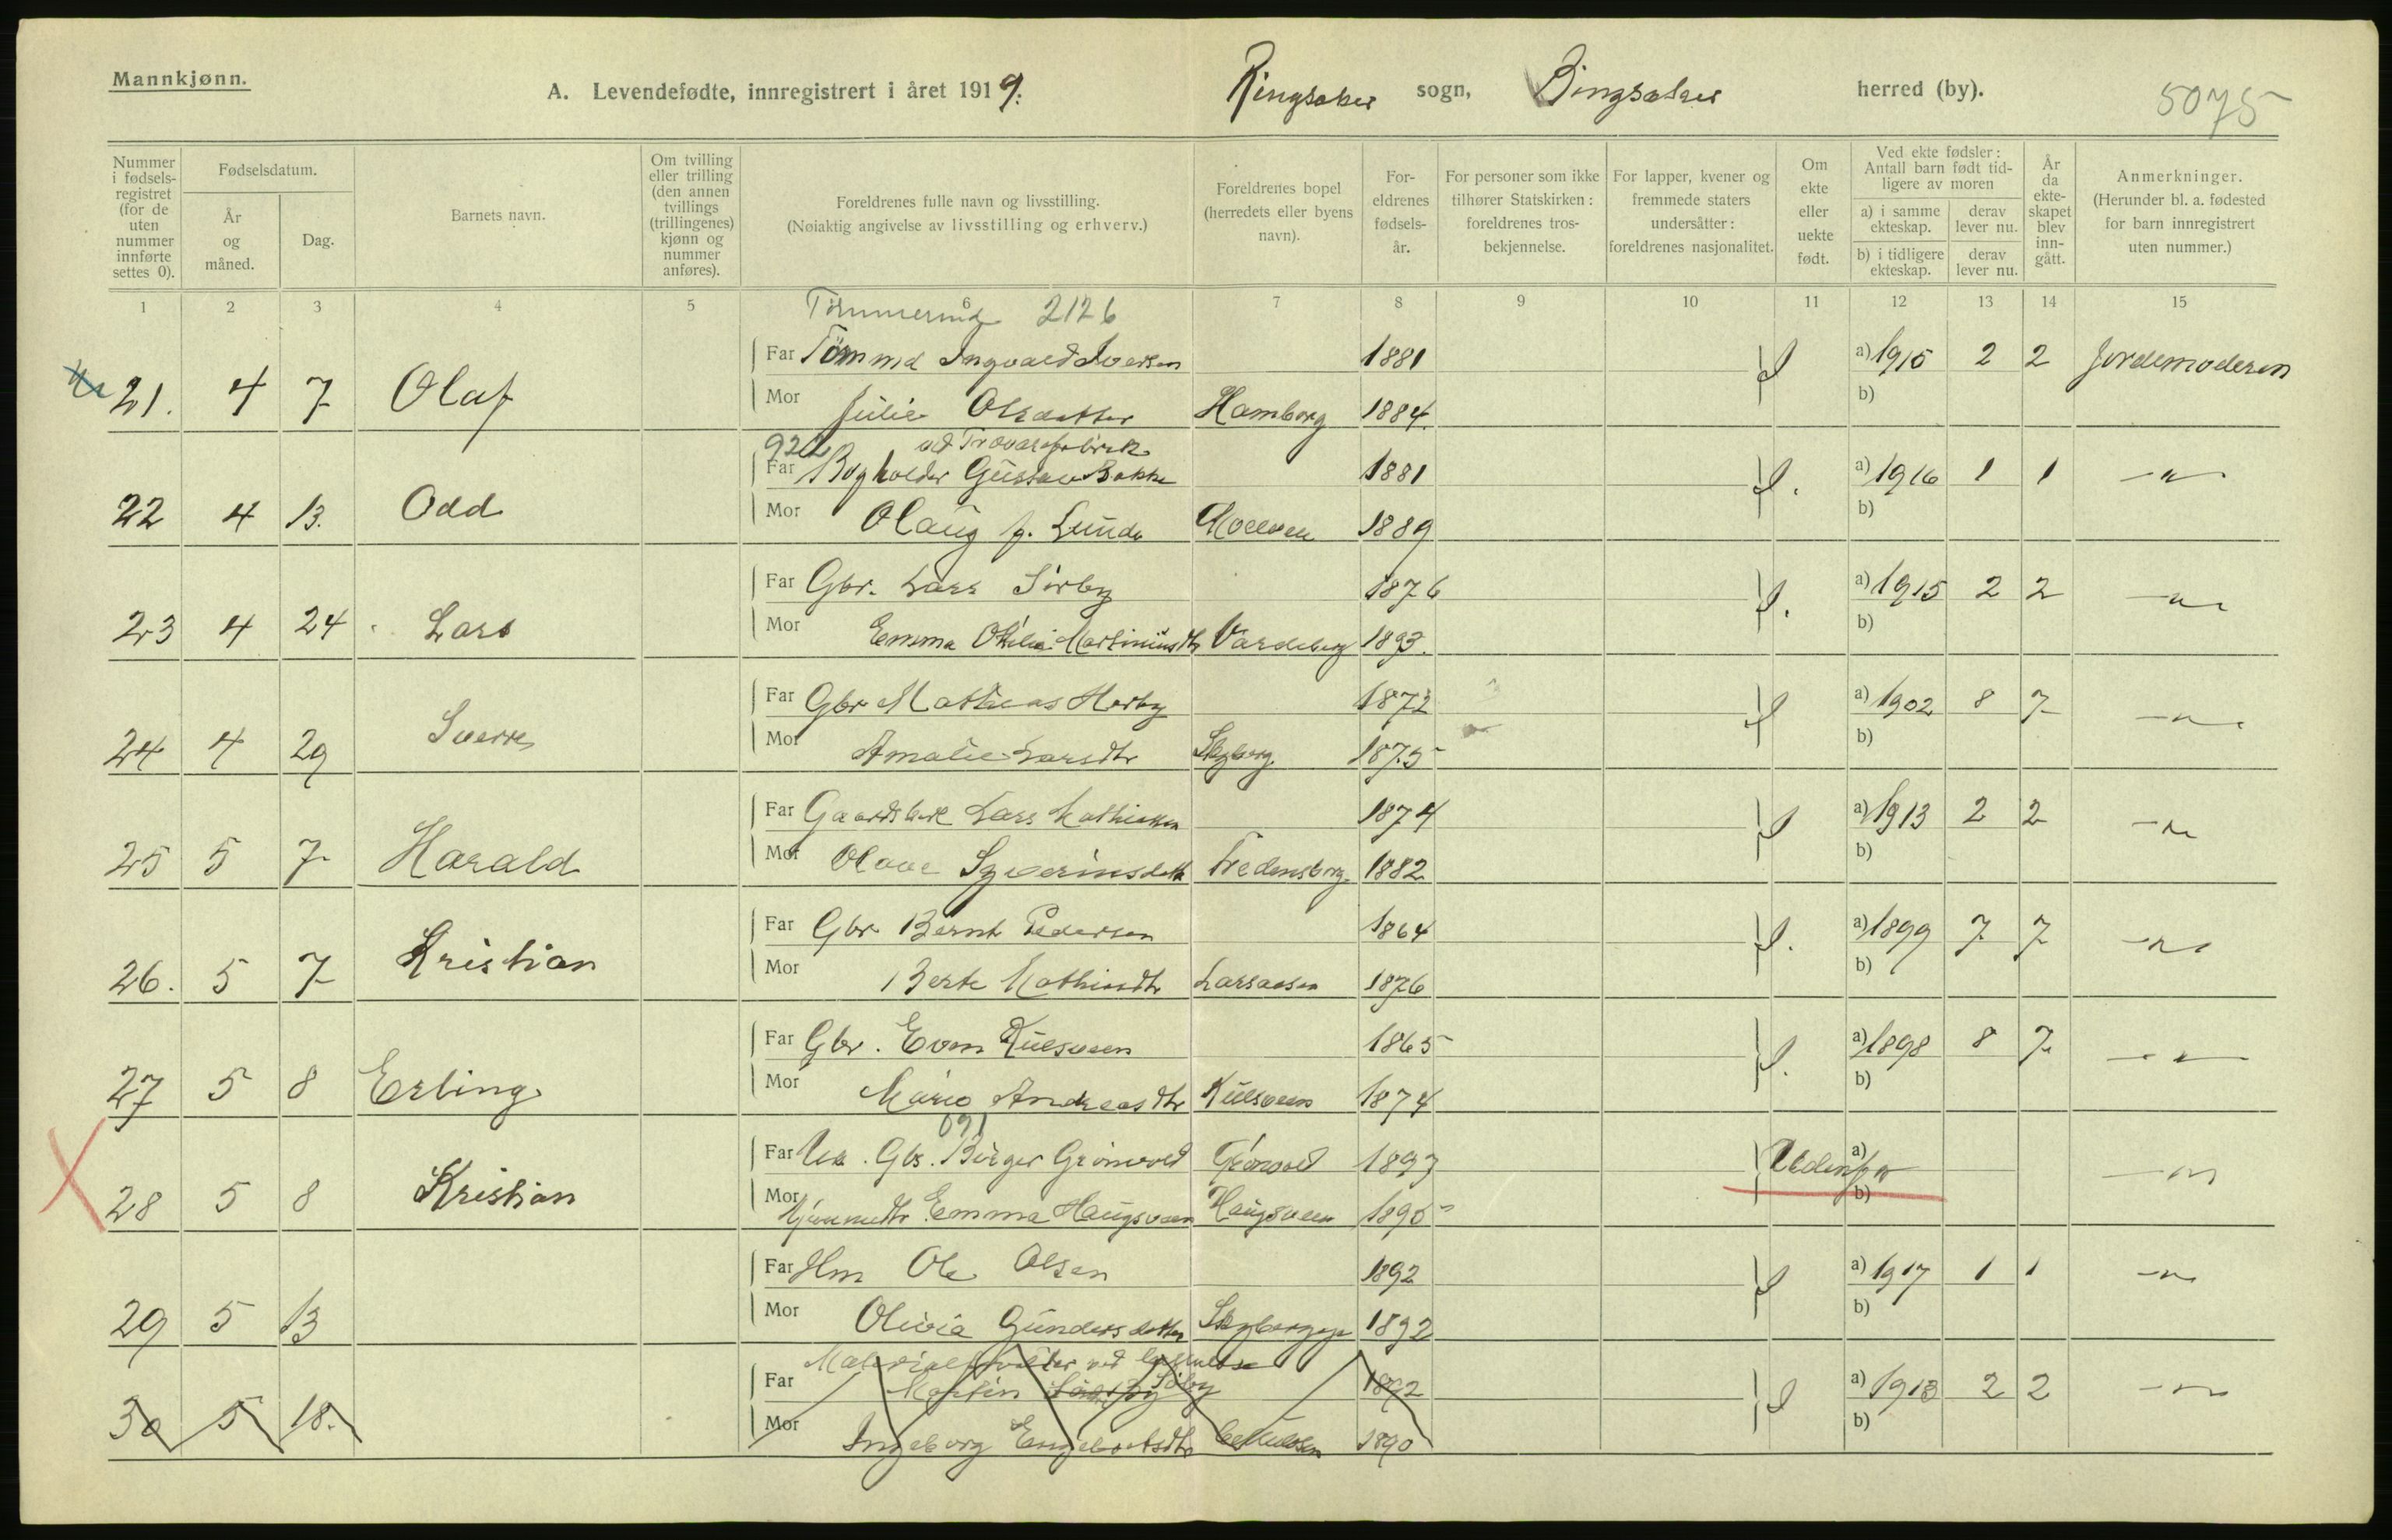 Mannkjønn.
A. Levendefødte, innregistrert i året 1919. Ringsaker sogn, Ringsaker herred (by). 5075
Nummer i fødsels-registret (for de uten nummer innførte settes 0).
Fødselsdatum.
År og måned.
Dag.
Barnets navn.
Om tvilling eller trilling (den annen tvillings (trillingenes) kjønn og nummer anføres).
Foreldrenes fulle navn og livsstilling.
(Nøiaktig angivelse av livsstilling og erhverv.)
Foreldrenes bopel (herredets eller byens navn).
For-eldrenes fødsels-år.
For personer som ikke tilhører Statskirken: foreldrenes tros-bekjennelse.
For lapper, kvener og fremmede staters undersåtter: foreldrenes nasjonalitet.
Om ekte eller uekte født.
Ved ekte fødsler: Antall barn født tid-ligere av moren
a) i samme ekteskap.
derav lever nu.
b) i tidligere ekteskap.
derav lever nu.
År da ekte-skapet blev inn-gått.
Anmerkninger.
(Herunder bl. a. fødested for barn innregistrert uten nummer.)
1 2 3 4 5 6 7 8 9 10 11 12 13 14 15
2126
Far Tömmd Ingvald Iversen 1881 a) 1915 2 2 Jordemoderen
21. 4 7 Olaf
Mor Julie Olsdatter Hamborg 1884. b)
922 ved Trævarefabrik
Far Bogholder Gustav Bakke 1881 a) 1916 1 1 —"—
22 4 13. Odd
Mor Olaug f. Lunde Moelven 1889 b)
Far Gbr. Lars Sörby 1876 a) 1915 2 2 —"—
23 4 24 Lars
Mor Emma Otilie Martiniusdtr Vardeberg 1893. b)
Far Gbr Mathias Horby 1872 a) 1902 8 7 —"—
24 4 29 Sverre
Mor Amalie Larsdtr Skyberg 1875 b)
Far Gaardsbest Lars Mathiessen 1874 a) 1913 2 2 —"—
25 5 7 Harald
Mor Olave Syverinsdatt Fredensborg 1882 b)
Far Gbr Bernt Pedersen 1864 a) 1899 7 7 —"—
26. 5 7 Kristian
Mor Berte Mathiasdtr Larsaasen 1876 b)
Far Gbr. Even Kulsveen 1865 a) 1898 8 7 —"—
27 5 8 Erling
Mor Marie Andreasdtr Kulsveen 1874 b)
691
Far Uk. Gbs. Birger Grönvold Grönvold 1893 a) —"—
28 5 8 Kristian
Mor Hjemmedtr Emma Haugsveen Haugsveen 1895 b)
Far Hm Ole Olsen 1892 a) 1917 1 1 —"—
29 5 13
Mor Olivia Gundersdatter Skybergeje 1892 b)
Materialforvalter ved
Far Martin Söby 1892 a) 1913 2 2 —"—
30 5 18.
Mor Ingeborg Engebretsdtr 1890 b)